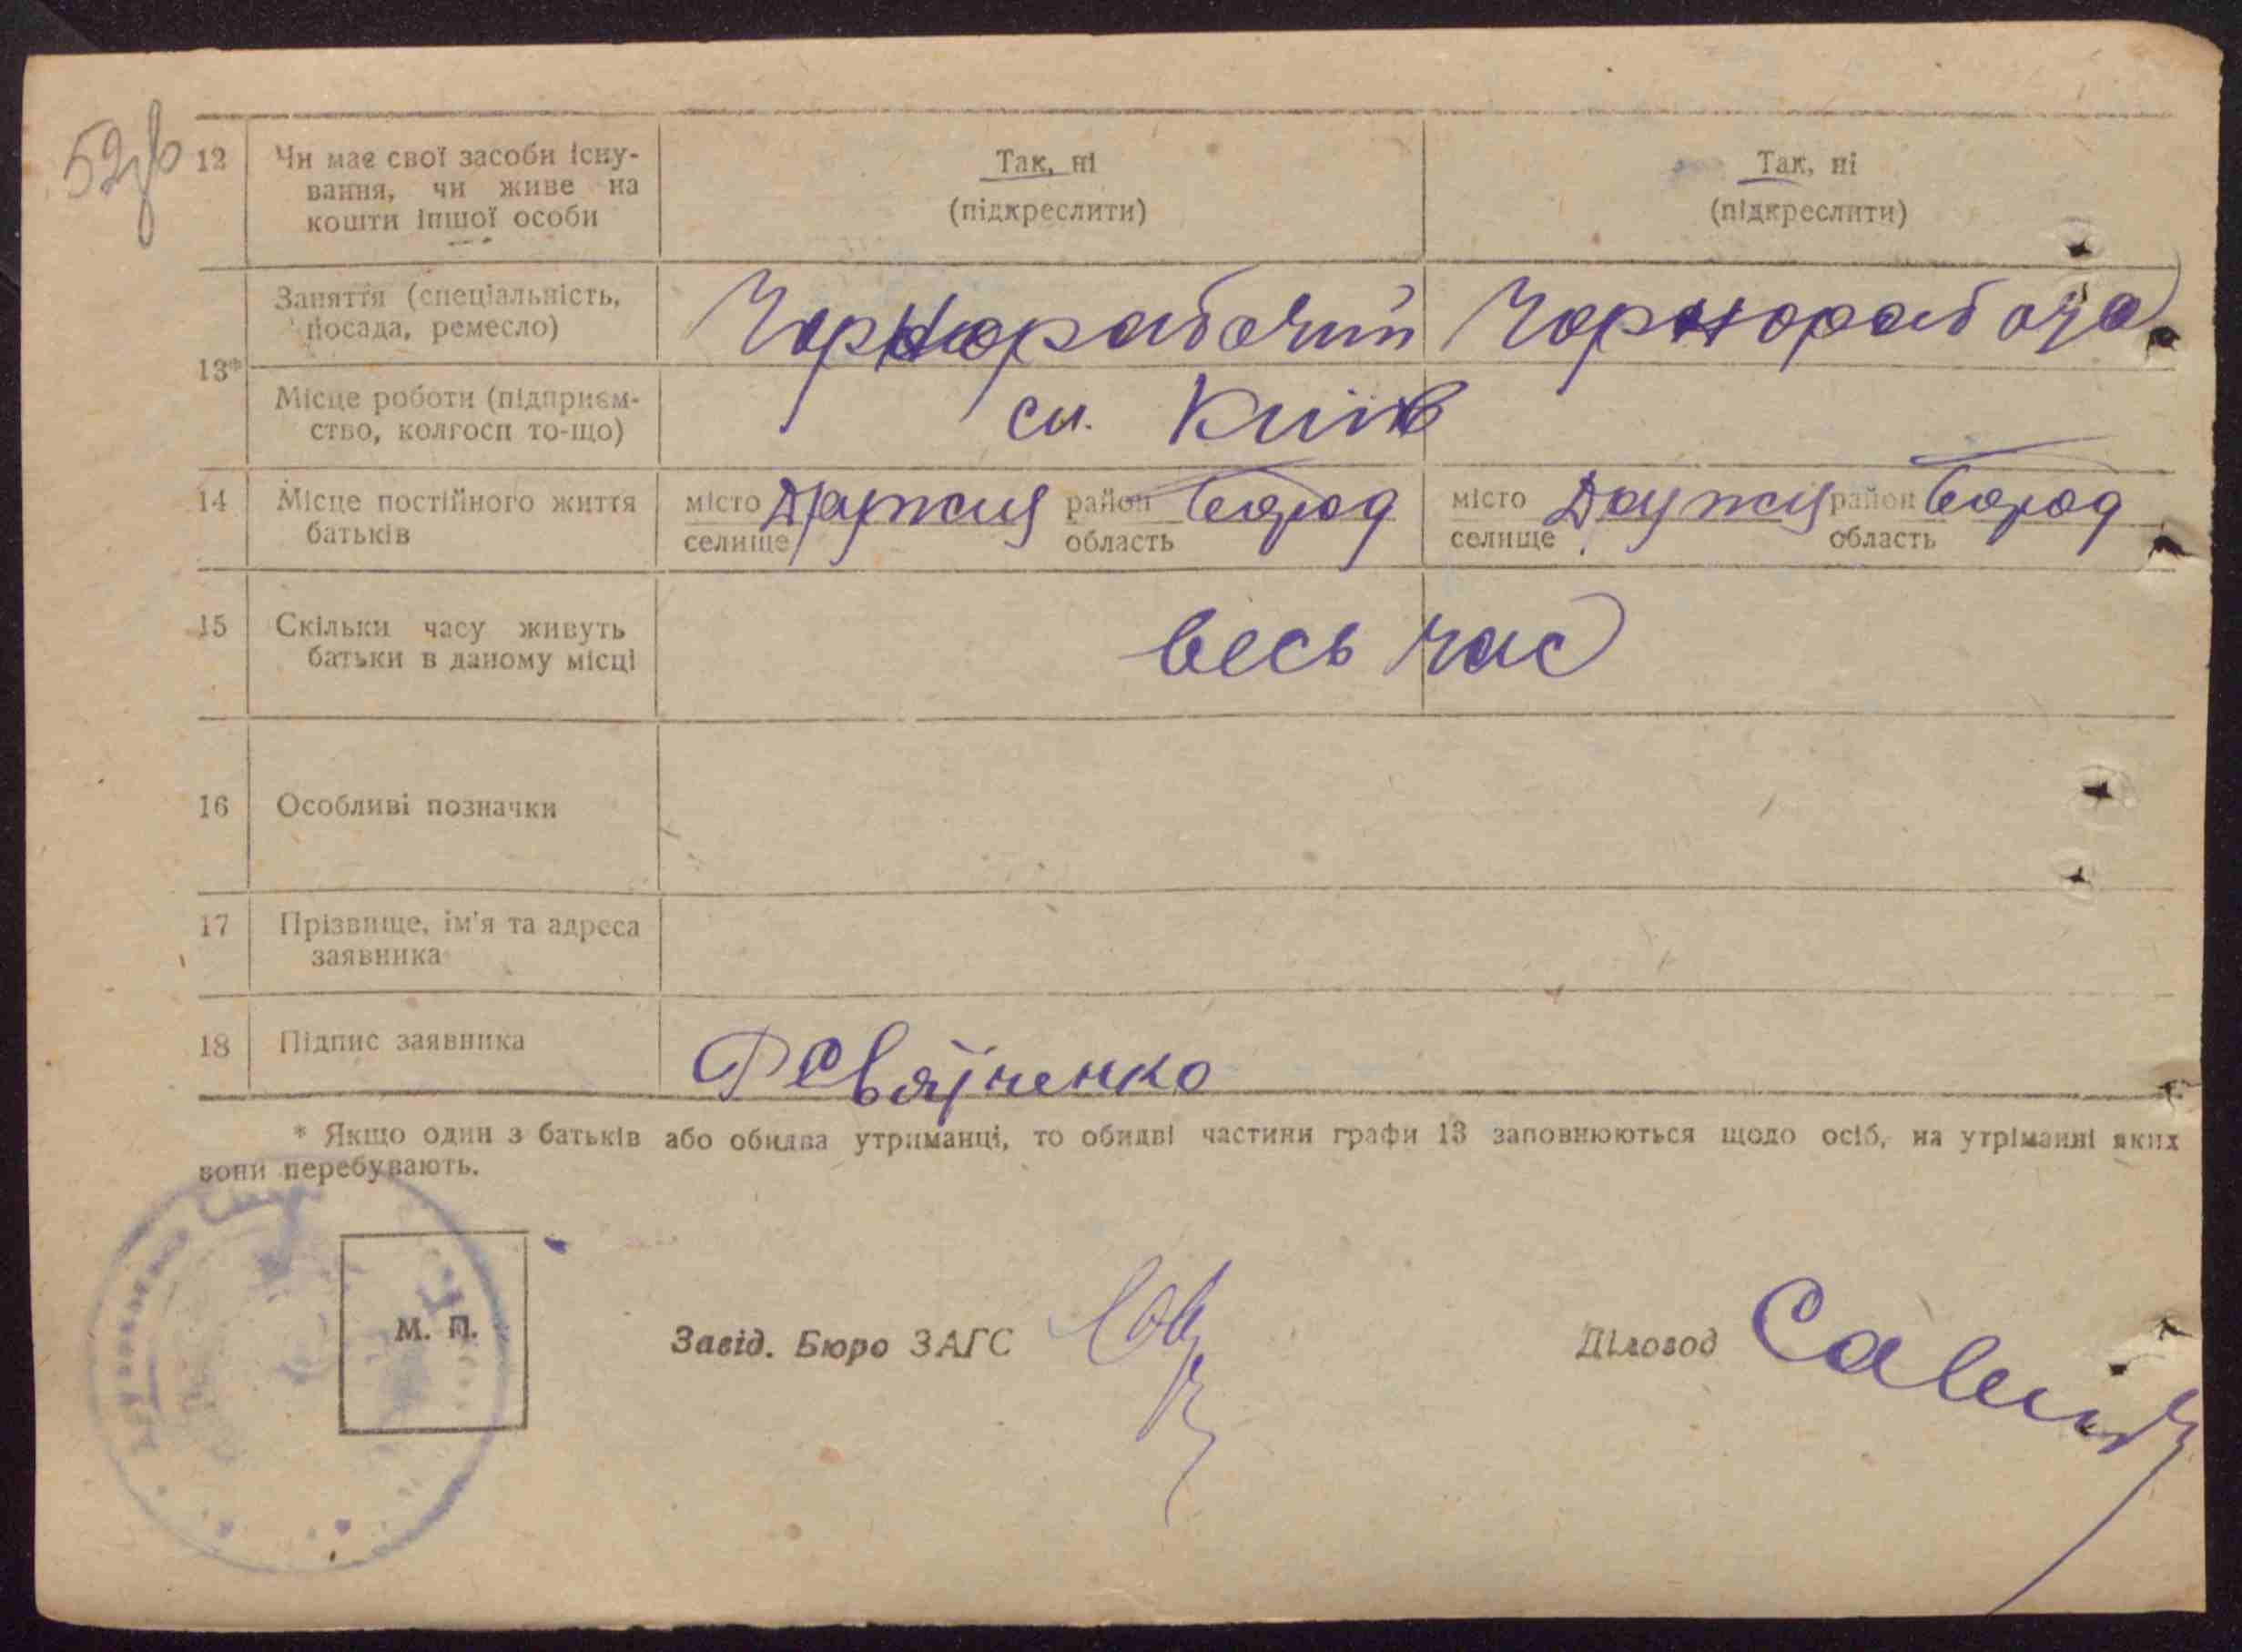 12 Чи має свої засоби існу-
вання, чи живе на
кошти іншої особи
Так, ні
(підкреслити)
Так, ні
(підкреслити)
13*
Заняття (спеціальність,
посада, ремесло)
Чорнорабочий
Чорнорабоча
Місце роботи (підприєм-
ство, колгосп то-що)
Київ
14 Місце постійного життя
батьків
місто
селище
район
область
місто
селище
район
область
15 Скільки часу живуть
батьки в даному місці
весь час
16 Особливі позначки
17 Прізвище, ім'я та адреса
заявника
18 Підпис заявника
* Якщо один з батьків або обидва утриманці, то обидві частини графи 13 заповнюються щодо осіб, на утріманні яких
вони перебувають.
М. П.
Завід. Бюро ЗАГС
Діловод